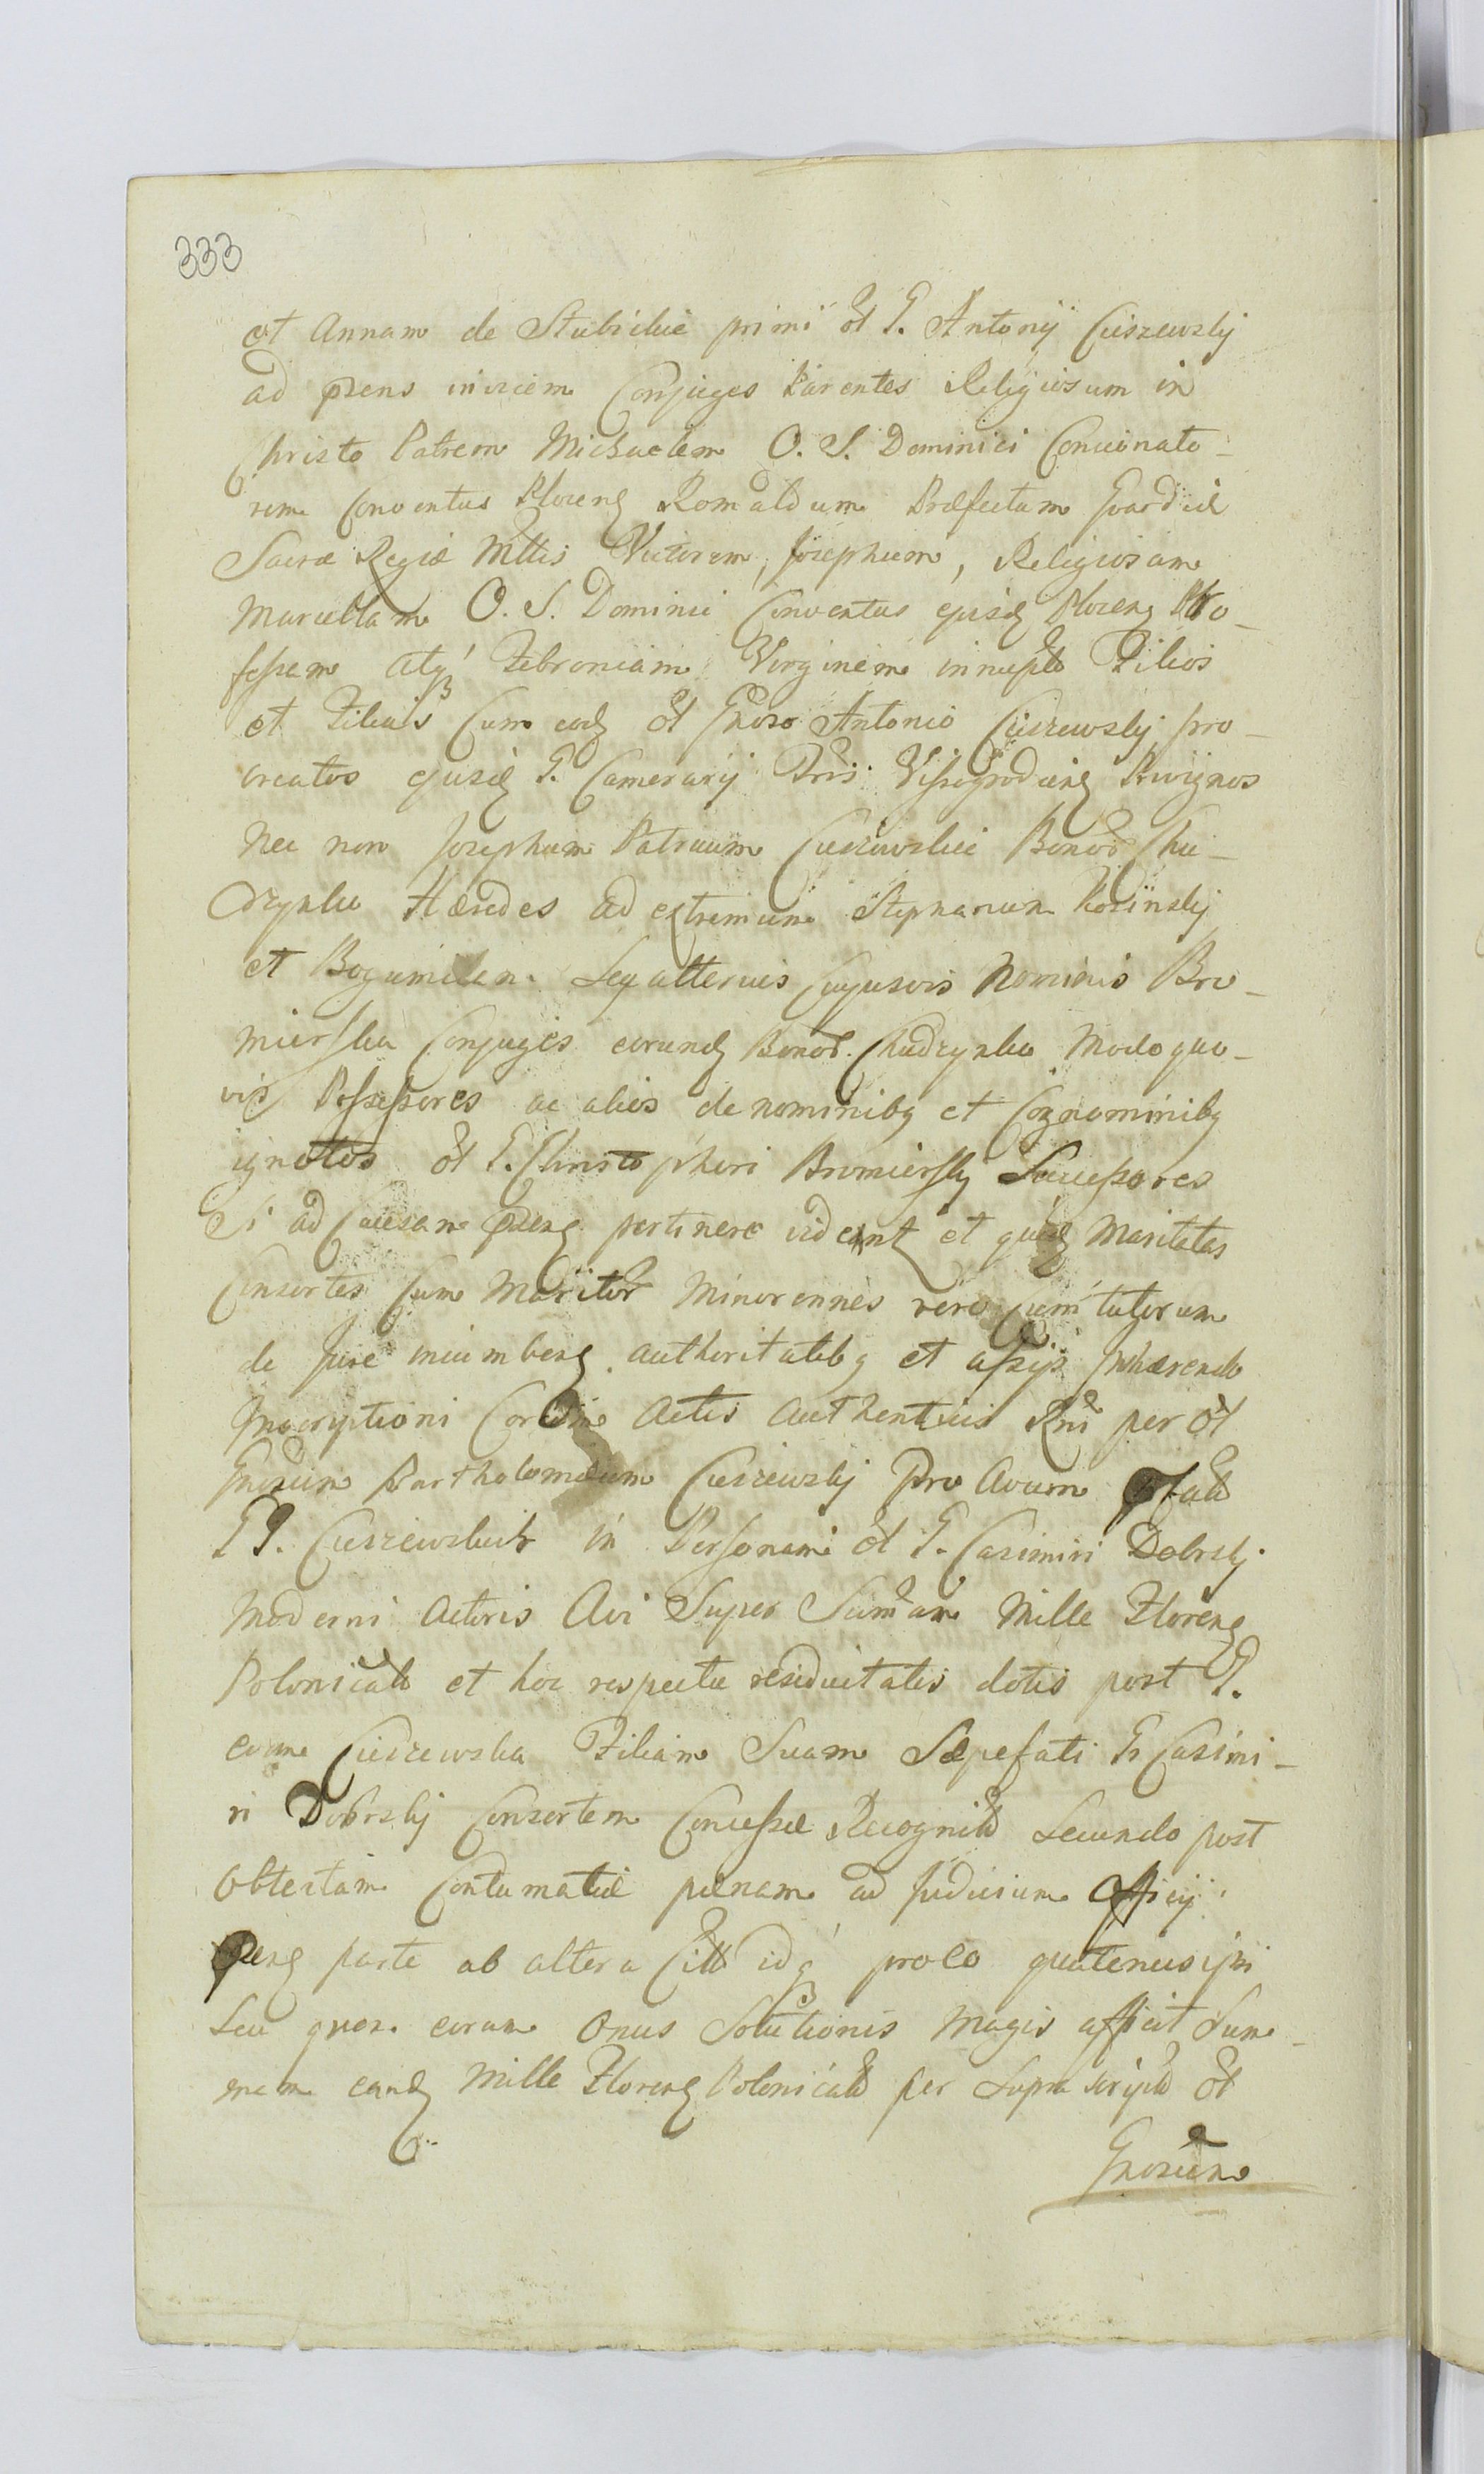 333
et Annam de Stubickie primi ol G. Antonij Cieszewskj
ad prens invicem Conjuges Parentes Religiosum in
Christo Patrem Michaelem O. S. Dominici Concionato-
rem Conventus Plocenq Romaldum Præfectum Gvardiæ
Sacræ Regiæ Mttis Victorem, Josephum, Religiosam
Marcellam O. S. Dominici Conventus ejusdq Plocenq Pro-
fessam atq' Febroniam Virginem innupt Filios
et Filias Cum eodq ol Gnoso Antonio Cieszewskj pro-
creatos ejusdq G. Camerarij Tris Vissogrodienq Privignos
nec non Josephum Patruum Cieszewskie Bonor Chu-
dzynko Hæredes ad extremum Stephanum Kosinskj
et Bogumilam Seq alterius Cujusvis Nominis Bro-
mierska Conjuges eorundq Bonor. Chudzynko Modo quo-
vis Possessores ac alios de nominibq et Cognominibq
ignotos ol G. Christopheri Bromierskj Successores
Si ad Causam prenq pertinere videantq et quidq Maritatas
Consortes Cum Maritor Minorennes vero Cum tutorum
de Jure incumbenq authoritatibq et assijs Inhærendo
Inscriptioni Coram Actis Authenticis Rni per ol
Gnosum Bartholomæum Cieszewskj Pro Avum præfatt
GG. Cieszewskich in Personam ol G. Casimiri Dobrskj
Moderni Actoris Avi Super Summam Mille Florenq
Polonicalt et hoc respectu residuitatis dotis post G.
eam Cieszewska Filiam Suam Sæpefati G. Casimi-
ri Dobrskj Consortem Concessæ Recognitt Secundo post
obtentam Contumatiæ pænam ad Judicium Officij
prenq parte ab altera Citt idq' pro eo quatenus ipsi
Seu quos. eorum Onus Solutionis Magis afficit Sum-
mam eandq Mille Florenq Polonicalt per Supra script ol
Gnosum